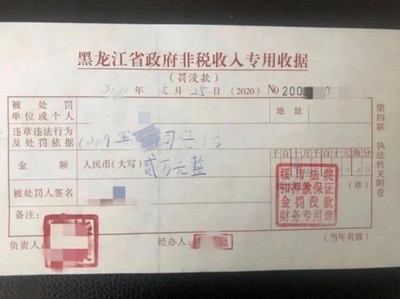 黑龙江省政府非税收入专用收据
(罚没款)
年 5 月 25 日 (2020) №200
被处罚
单位或个人
地址
违章违法行为
及处罚依据
金额
人民币(大写) 贰万元整
千百十万千百十元角分
被处罚人签名
(章)
备注:
绥市法院
扣押款保证
金罚没款
财务专用章
负责人
经办人
(当年有效)
第四联 执法机关附卷